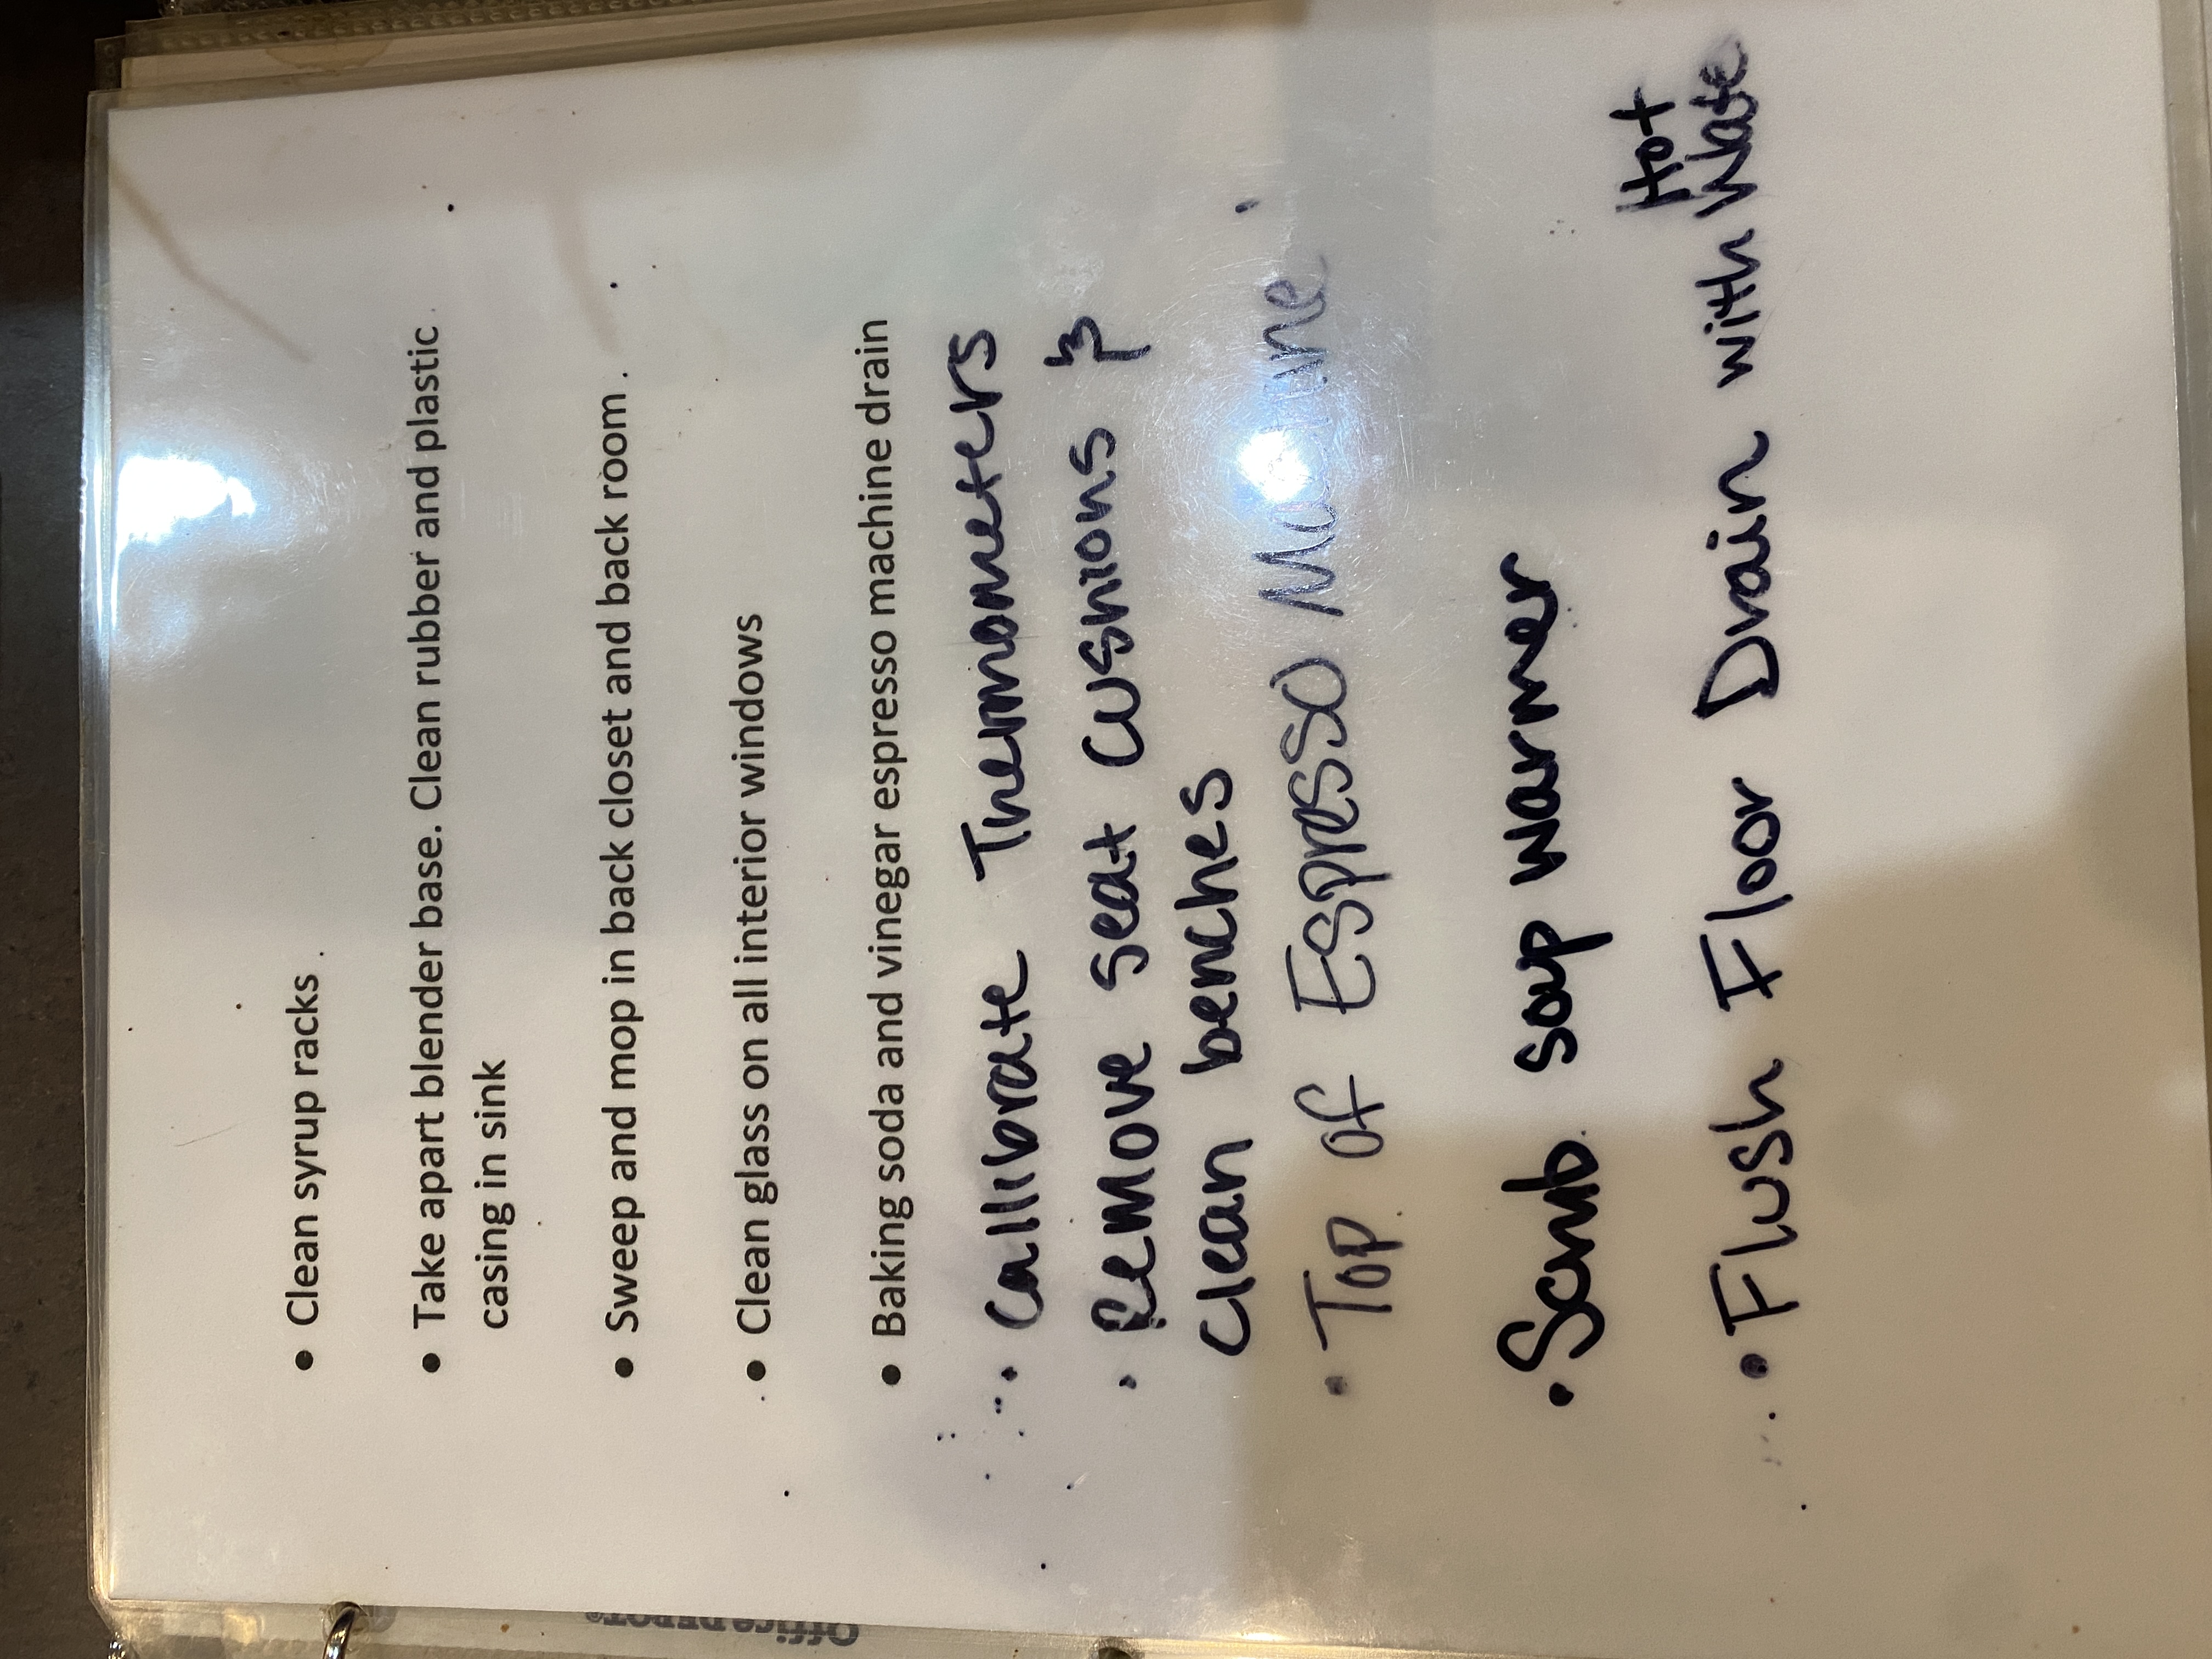 • Clean syrup racks
• Take apart blender base. Clean rubber and plastic
casing in sink
• Sweep and mop in back closet and back room
• Clean glass on all interior windows
• Baking soda and vinegar espresso machine drain
• Callibrate Thermometers
• Remove seat cushions &
clean benches
• Top of Espresso Machine
• Scrub soap warmer
Hot
• Flush Floor Drain with Wate
Office DEPOT